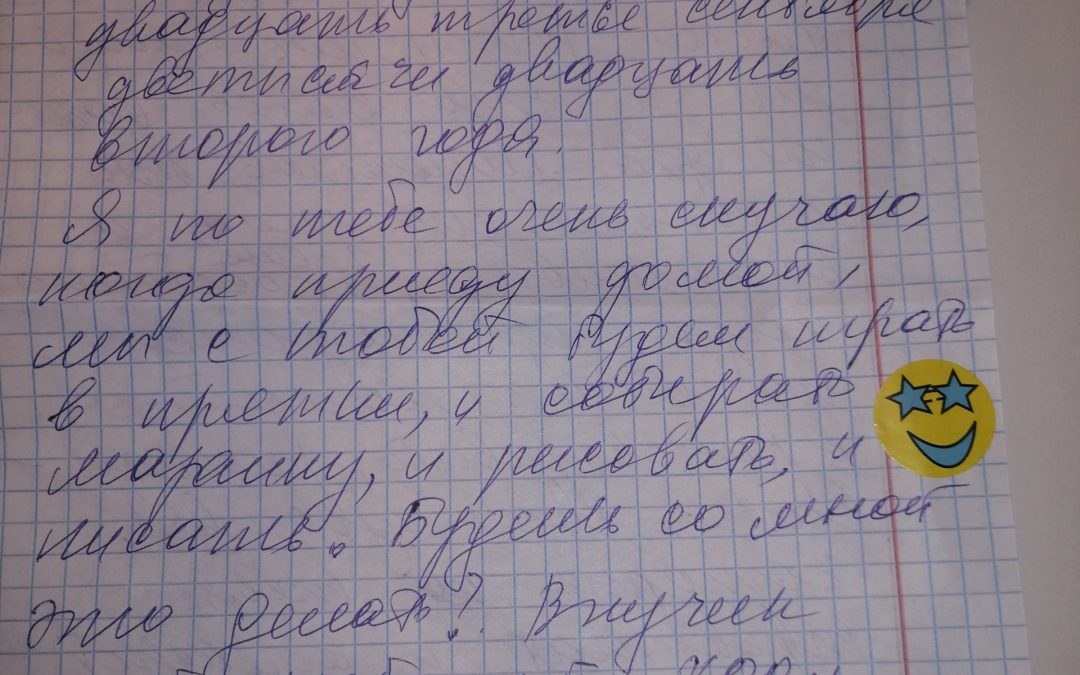 двадцать третье сентября
дветысячи двадцать
второго года.
Я по тебе очень скучаю,
когда приеду домой,
мы с тобой будем играть
в прятки, и собирать
мараику, и рисовать, и
писать. Будешь со мной
это делать? Внучек